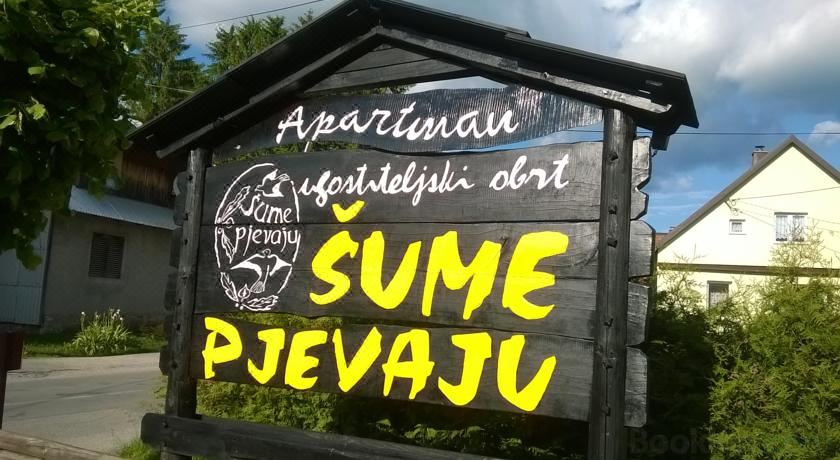 Apartman
ugostiteljski obrt
šume
pjevaju
ŠUME
PJEVAJU